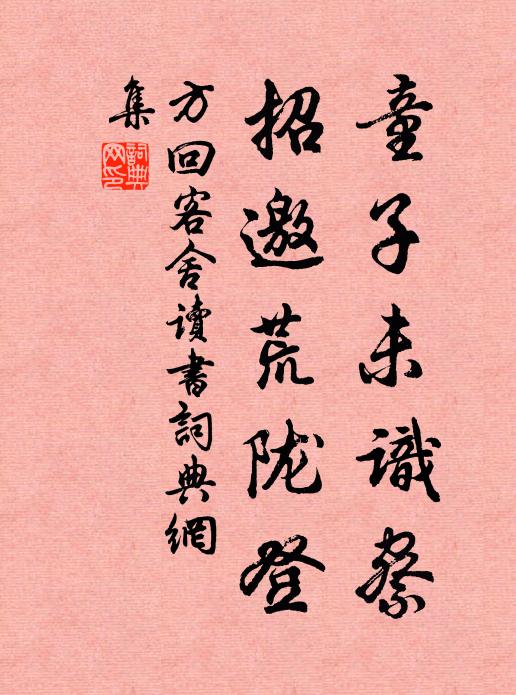 童子未識察
招邀荒陇登
方回客舍讀書詞典網
集
詞典
网印